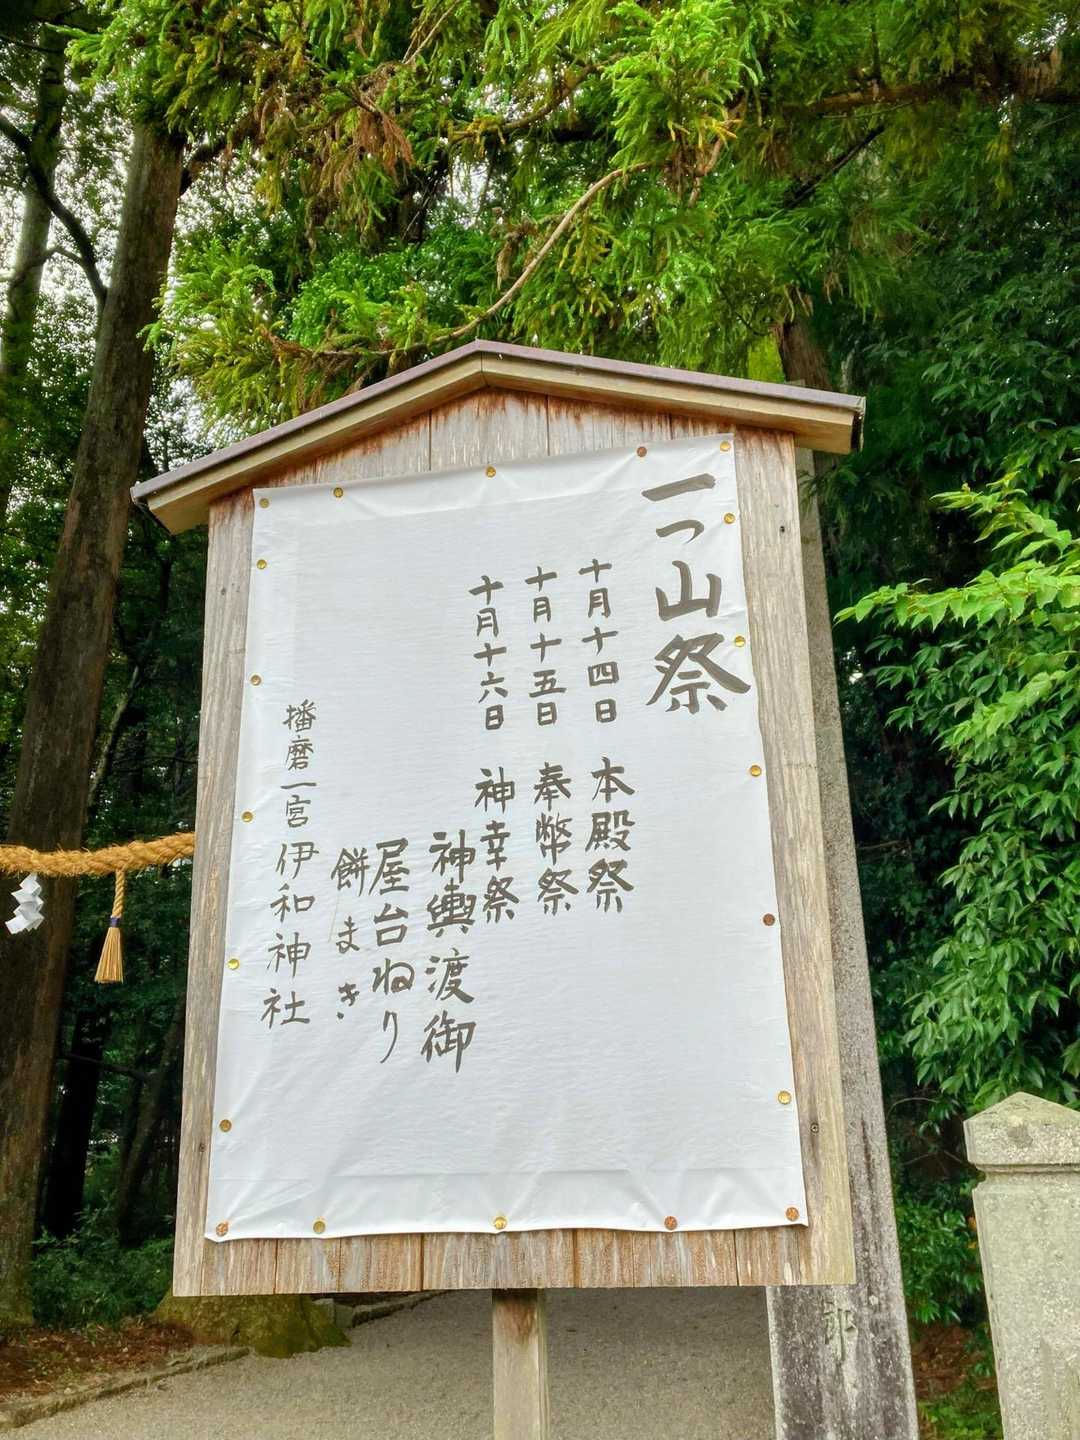 一つ山祭
十月十四日 本殿祭
十月十五日 奉幣祭
十月十六日 神幸祭
神輿渡御
屋台ねり
餅まき
播磨一宮 伊和神社